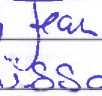 Jean
üsso